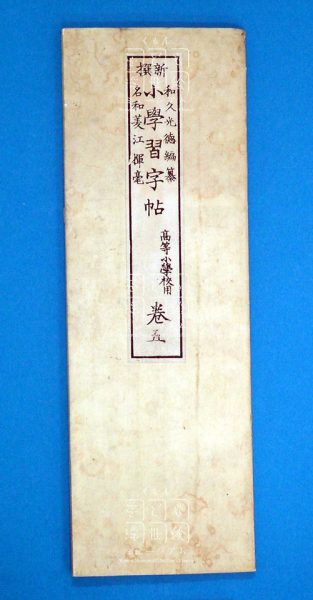 新撰
和久光德編纂
小學習字帖
名和菱江揮毫
高等小學校用
卷五